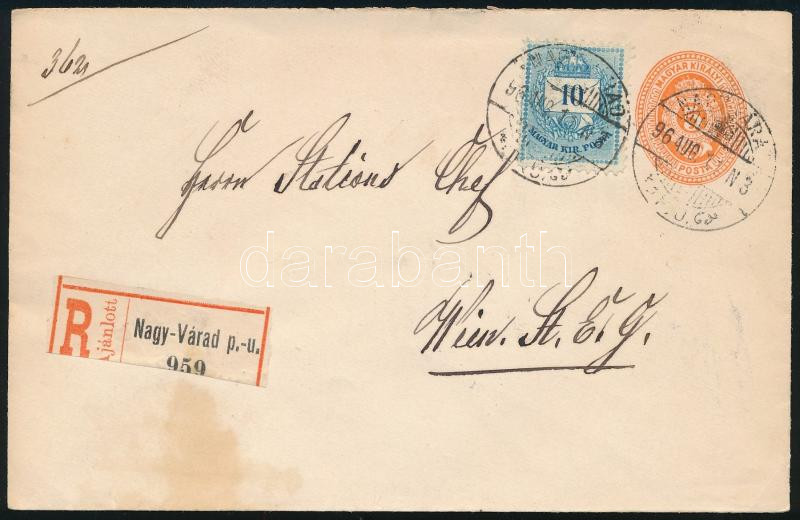 Herrn Stations Chef
Wien. St. E. G.
R
Ajánlott
Nagy-Várad p.-u.
959
10
MAGYAR KIR. POSTA
96 AUG
N 3
darabanth